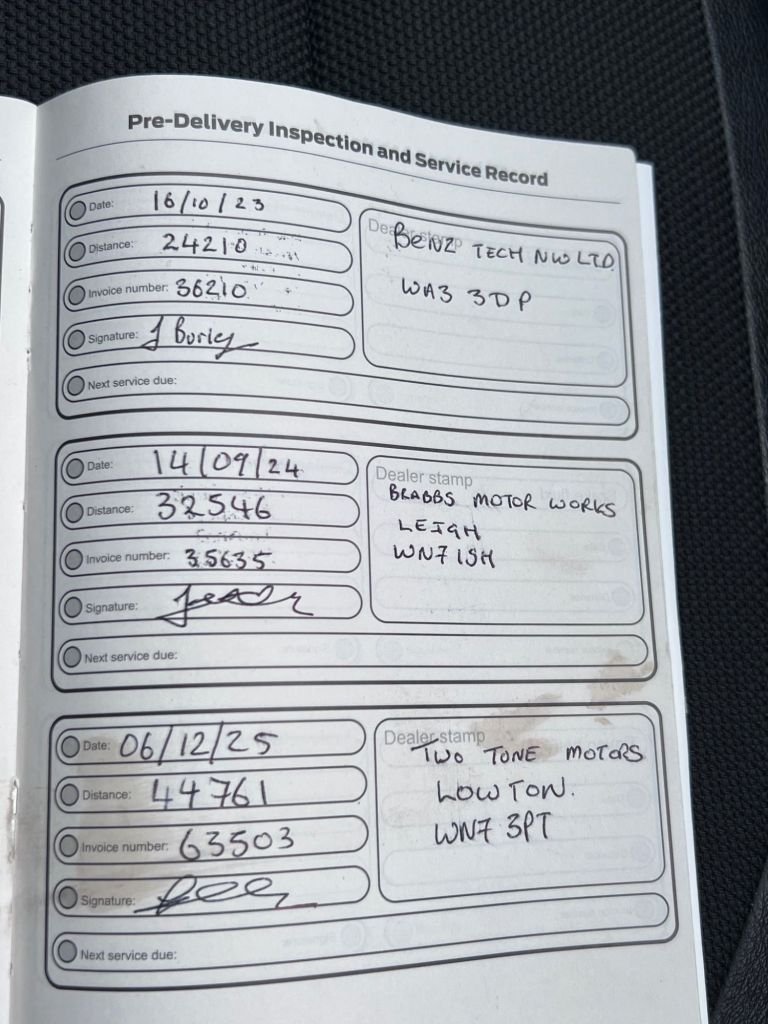 Pre-Delivery Inspection and Service Record
Date: 16/10/23
Distance: 24210
Invoice number: 36210
Signature: J Burley
Next service due:
Dealer stamp
BENZ TECH NW LTD.
WA3 3DP
Date: 14/09/24
Distance: 32546
Invoice number: 35635
Signature:
Next service due:
Dealer stamp
BRABBS MOTOR WORKS
LEIGH
WN7 1SH
Date: 06/12/25
Distance: 44761
Invoice number: 63503
Signature:
Next service due:
Dealer stamp
TWO TONE MOTORS
LOWTON.
WN7 3PT